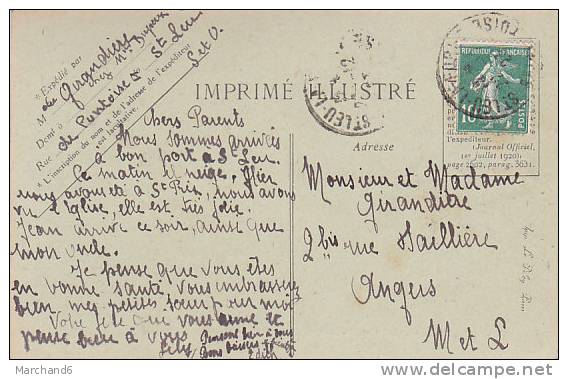 * Expédié par
M de Girandière
chez Mme Dupeux
Demt à
Rue de Pontoise à St Leu
S et O.
* L'inscription du nom et de l'adresse de l'expéditeur
est facultative.
IMPRIMÉ ILLUSTRÉ
REPUBLIQUE FRANÇAISE
10
POSTES
ST LEU
l'expéditeur.
(Journal Officiel,
1er juillet 1920);
page 2802, parag. 5631.
Adresse
Chers Parents
Nous sommes arrivés
à bon port à St Leu.
Ce matin il neige. Hier
nous avons été à St Prix, nous avons
vu l'Eglise, elle est très jolie.
Jean arrive ce soir, ainsi que
mon oncle.
Je pense que vous êtes
en bonne santé. Vous embrasserez
bien mes petites sœurs pour moi
Votre fille que vous aime et
pense bien à vous
Lily
Pensons bien à vous
Bons baisers
Edith
Monsieur et Madame
Girandière
2 bis rue Vaillière
Angers
M et L
http://marchand6.delcampe.net